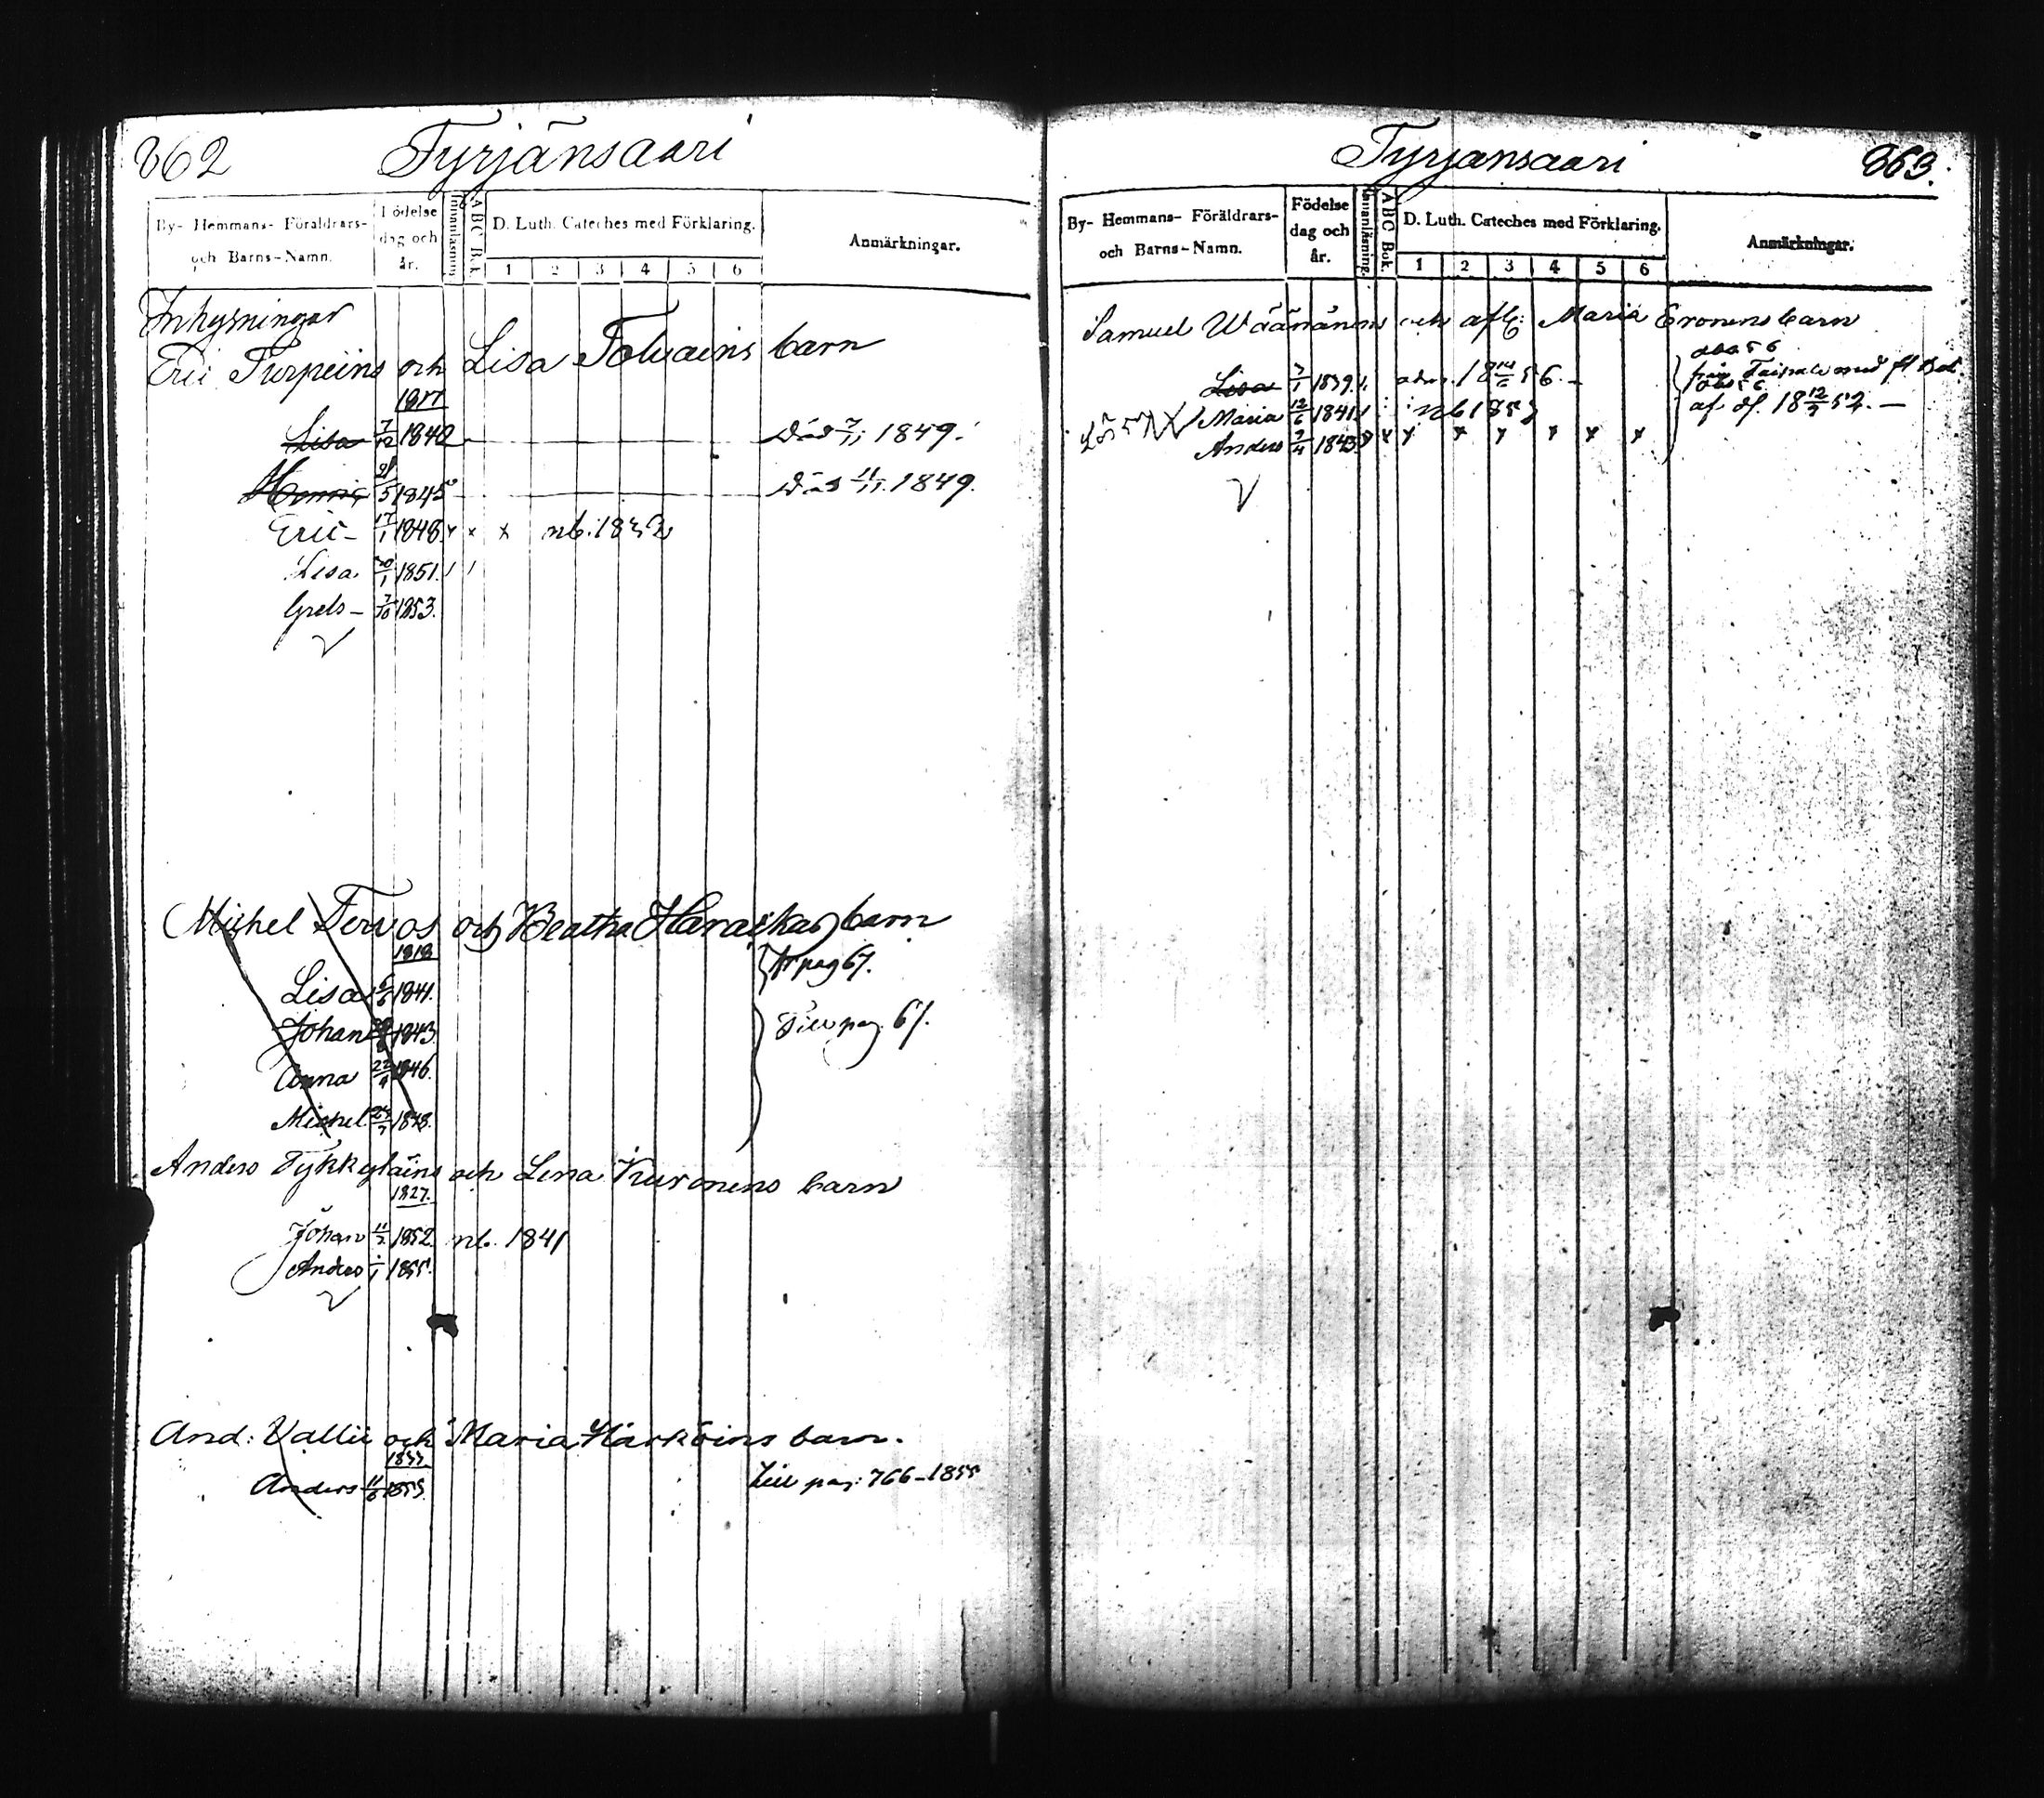 862 Tyrjänsaari
By- Hemmans- Föräldrars- och Barns-Namn. Födelse dag och år. Innanläsning. ABC Bok. D. Luth. Cateches med Förklaring. 1 2 3 4 5 6 Anmärkningar.
Inhysningar
Eric Turpeins och Lisa Tolvains barn
Lisa 7/12 1842 Död 7/11 1849.
5 1845 Död 11/11 1849.
Eric - 17/1 1848. x x x nb. 1832
Lisa 20/1 1851. / /
Greta - 7/10 1853.
Michel Tervos och Beatha barn
1818 pag 67.
Lisa 1841.
Johan 1843. Till pag. 67.
Anna 22/9 1846.
Michel 24/7 1848.
Anders Tykkyläins och Lena Kuronens barn
1827.
Johan 1852. nb. 1841
Anders 1855.
And: Vallii och Maria Härköins barn.
1833
Anders 11/6 1855. till pag: 766-1855
Tyrjänsaari 863.
By- Hemmans- Föräldrars- och Barns-Namn. Födelse dag och år. Innanläsning. ABC Bok. D. Luth. Cateches med Förklaring. 1 2 3 4 5 6 Anmärkningar.
Samuel Wäänänens och afl: Maria Eronens barn
Lisa 7/1 1839. adm. 18 14/6 56. - från Taipale med fl
Maria 12/6 1841 nb 1857 af d. 18 12/3 52. -
Anders 9/4 1843 x x x x x x x x